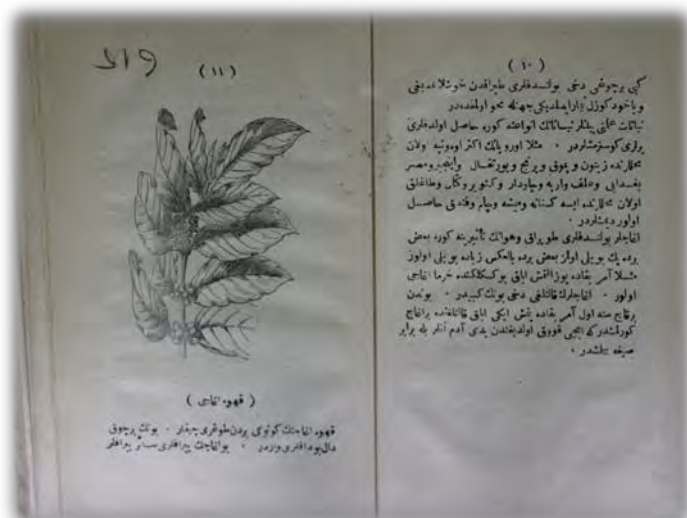 (١٠)
كبی برچوغی دخی بولندقلری طپراقدن خوشلانمدیغی
و یاخود كوزل تیمار ایدلمدیكی جهتله محو اولمقده‌در
نباتات علمنی بیلنلر نباتاتك انواعنه كوره حاصل اولدقلری
یرلری كوسترمشلردر ٠ مثلا اوروپانك اكثر اووه‌لق اولان
محللرنده زیتون و پموق و برنج و پورتقال و اینجیر و مصر
بغدایی و علف و ارپه و چاودار و كنویر و كتان و طاغلق
اولان محللرنده ایسه كستانه و میشه و چام و فندق حاصل
اولور دیمشلردر ٠
اغاجلر بولندقلری طوپراق و هوانك تأثیرینه كوره بعض
یرده پك بویلی اولمز بعض یرده بالعكس زیاده بویلی اولور
مثلا آمریقاده یوز التمش ایاق یوكسكلكنده خرما اغاجی
اولور ٠ اغاجلرك قالكلغی دخی بونك كبیدر ٠ بوندن
برقاچ سنه اول آمریقاده یتمش ایكی ایاق قالكلغنده براغاج
كورلمشدر كه ایچی قووق اولدیغندن یدی آدم آتلر یله برابر
صیغه بیلمشدر ٠
(١١)
(قهوه اغاجی)
قهوه اغاجنك كوتوكی یردن طوغری چیقار ٠ بونك برچوق
دال بوداقلری واردر ٠ بو اغاجك یپراقلری سائر یپراقلر